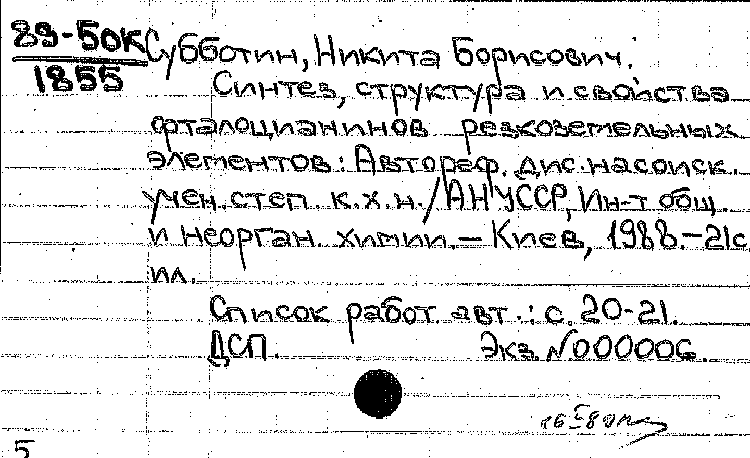 89-50К
1855
Субботин, Никита Борисович.
Синтез, структура и свойства
фталоцианинов резкоземельных
элементов: Автореф. дис. на соиск.
учен. степ. к.х.н. / АН УССР, Ин-т общ.
и неорган. химии. – Киев, 1988. – 21с
ил.
Список работ авт.: с. 20-21.
ДСП. Экз. №000006
5